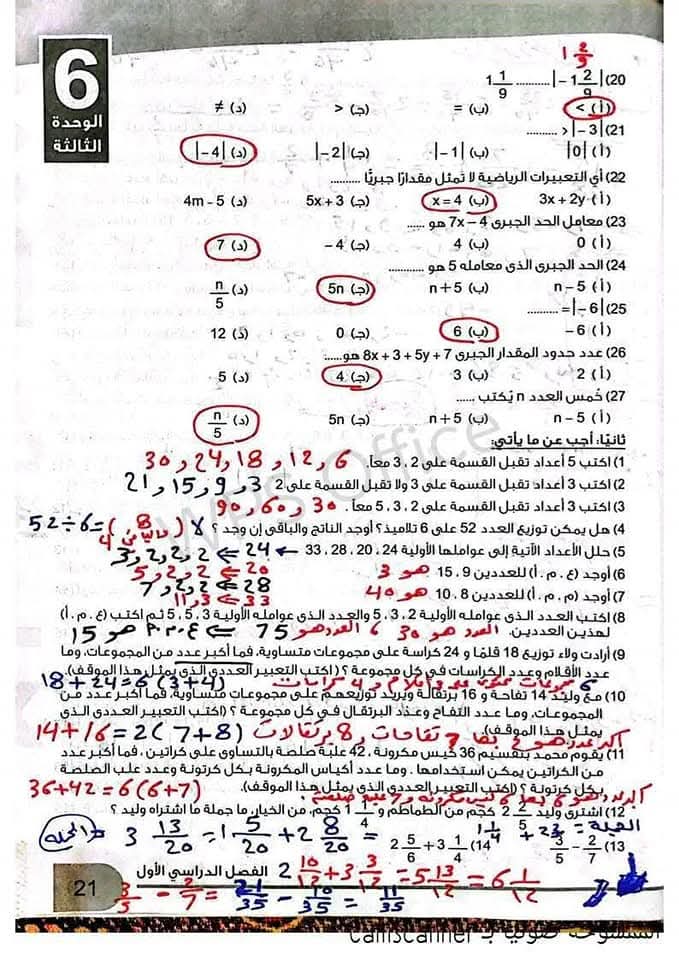 6
الوحدة
الثالثة
1 2/9
20) |-1 2/9| .......... 1 1/9
(أ) > (ب) = (جـ) < (د) ≠
21) |-3| < ..........
(أ) |0| (ب) |-1| (جـ) |-2| (د) |-4|
22) أي التعبيرات الرياضية لا تُمثل مقدارًا جبريًا ..........
(أ) 3x + 2y (ب) x = 4 (جـ) 5x + 3 (د) 4m - 5
23) معامل الحد الجبرى 7x - 4 هو ......
(أ) 0 (ب) 4 (جـ) -4 (د) 7
24) الحد الجبرى الذى معامله 5 هو ..........
(أ) n - 5 (ب) n + 5 (جـ) 5n (د) n/5
25) |-6| = ..........
(أ) -6 (ب) 6 (جـ) 0 (د) 12
26) عدد حدود المقدار الجبرى 8x + 3 + 5y + 7 هو......
(أ) 2 (ب) 3 (جـ) 4 (د) 5
27) خُمس العدد n يُكتب ......
(أ) n - 5 (ب) n + 5 (جـ) 5n (د) n/5
ثانيًا: أجب عن ما يأتي:
1) اكتب 5 أعداد تقبل القسمة على 2 ، 3 معاً. 6 و 12 و 18 و 24 و 30
2) اكتب 3 أعداد تقبل القسمة على 3 ولا تقبل القسمة على 2 3 و 9 و 15 و 21
3) اكتب 3 أعداد تقبل القسمة على 2 ، 3 ، 5 معاً . 30 و 60 و 90
4) هل يمكن توزيع العدد 52 على 6 تلاميذ؟ أوجد الناتج والباقى إن وجد ؟ لا 52÷6=(8 والباقى 4)
5) حلل الأعداد الآتية إلى عواملها الأولية 24 ، 20 ، 28 ، 33 ← 24 ⇐ 2 و 2 و 2 و 3
20 ⇐ 2 و 2 و 5
6) أوجد (ع . م . أ) للعددين 9 ، 15 هو 3
28 ⇐ 2 و 2 و 7
7) أوجد (م . م . أ) للعددين 8 ، 10 هو 40
33 ⇐ 3 و 11
8) اكتب العدد الذى عوامله الأولية 2 ، 3 ، 5 والعدد الذى عوامله الأولية 3 ، 5 ، 5 ثم اكتب (ع . م . أ)
لهذين العددين. العدد هو 30 6 العدد هو 75 ⇐ ع.م.أ هو 15
9) أرادت ولاء توزيع 18 قلمًا و 24 كراسة على مجموعات متساوية، فما أكبر عدد من المجموعات، وما
عدد الأقلام وعدد الكراسات في كل مجموعة ؟ (اكتب التعبير العددى الذى يمثل هذا الموقف).
18 + 24 = 6 (3+4) 6 مجموعات 4 كراسات
10) مع وليد 14 تفاحة و 16 برتقالة ويريد توزيعهم على مجموعات متساوية، فما أكبر عدد من
المجموعات، وما عدد التفاح وعدد البرتقال في كل مجموعة ؟ (اكتب التعبير العددى الذى
يمثل هذا الموقف).
14 + 16 = 2 ( 7 + 8 ) تفاحات و 8 برتقالات
11) يقوم محمد بتقسيم 36 كيس مكرونة ، 42 علبة صلصة بالتساوى على كراتين ، فما أكبر عدد
من الكراتين يمكن استخدامها . وما عدد أكياس المكرونة بكل كرتونة وعدد علب الصلصة
بكل كرتونة ؟ (اكتب التعبير العددى الذى يمثل هذا الموقف).
36+42 = 6(6+7) 6 كيس مكرونه و 7 علبه صلصه
12) اشترى وليد 2 2/5 كجم من الطماطم و 1 1/4 كجم، من الخيار، ما جملة ما اشتراه وليد ؟
الجملة 3 13/20 = 1 5/20 + 2 8/20 =
13) 3/5 - 2/7 14) 2 5/6 + 3 1/4
2 10/12 + 3 3/12 = 5 13/12 = 6 1/12
3/5 - 2/7 = 21/35 - 10/35 = 11/35
الفصل الدراسي الأول
21
WPS Office
الممسوحة ضوئيا بـ CamScanner